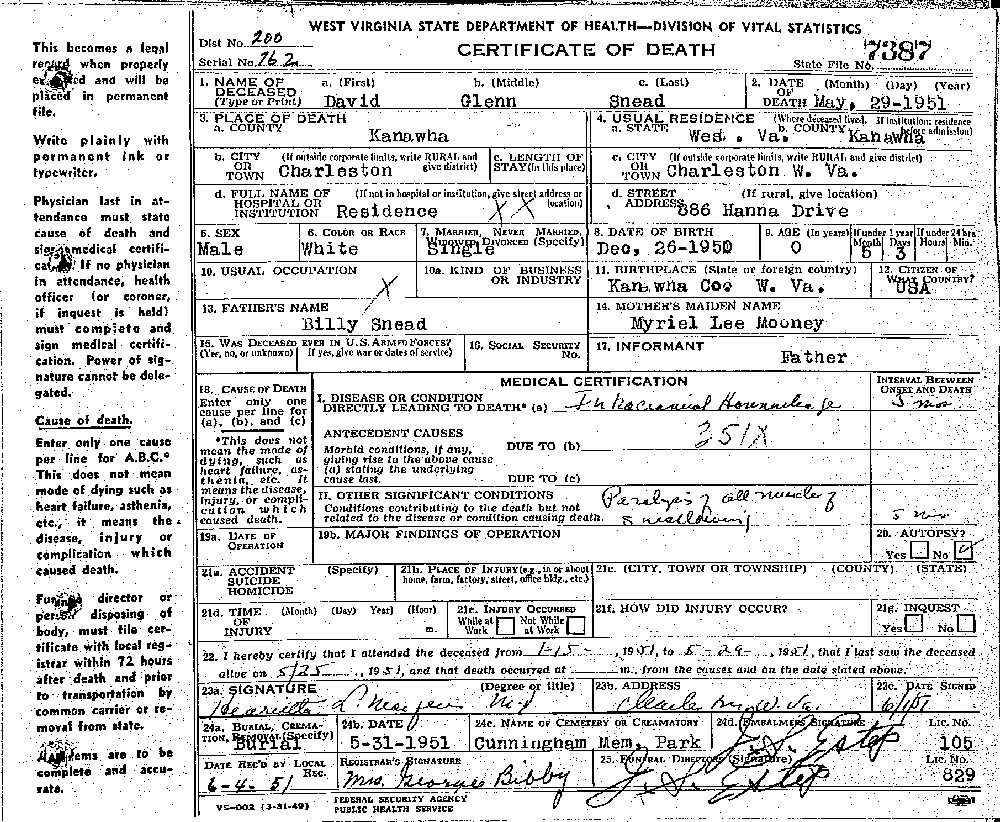 This becomes a legal
record when properly
and will be
placed in permanent
file.
Write plainly with
permanent ink or
typewriter.
Physician last in at-
tendance must state
cause of death and
sign medical certifi-
If no physician
in attendance, health
officer (or coroner,
if inquest is held)
must complete and
sign medical certifi-
cation. Power of sig-
nature cannot be dele-
gated.
Cause of death.
Enter only one cause
per line for A.B.C.*
This does not mean
mode of dying such as
heart failure, asthenia,
etc., it means the
disease, injury or
complication which
caused death.
director or
disposing of
body, must file cer-
tificate with local reg-
istrar within 72 hours
after death and prior
to transportation by
common carrier or re-
moval from state.
items are to be
complete and accu-
rate.
WEST VIRGINIA STATE DEPARTMENT OF HEALTH—DIVISION OF VITAL STATISTICS
Dist No. 200
CERTIFICATE OF DEATH
7387
Serial No. 762
State File No.
1. NAME OF DECEASED (Type or Print) a. (First) b. (Middle) c. (Last)
David Glenn Snead
2. DATE OF DEATH (Month) (Day) (Year)
May, 29-1951
3. PLACE OF DEATH
a. COUNTY
Kanawha
4. USUAL RESIDENCE (Where deceased lived. If institution: residence before admission)
a. STATE West . Va. b. COUNTY Kanawha
b. CITY OR TOWN (If outside corporate limits, write RURAL and give district)
Charleston
c. LENGTH OF STAY (in this place)
c. CITY OR TOWN (If outside corporate limits, write RURAL and give district)
Charleston W. Va.
d. FULL NAME OF HOSPITAL OR INSTITUTION (If not in hospital or institution, give street address or location)
Residence XX
d. STREET ADDRESS (If rural, give location)
886 Hanna Drive
5. SEX
Male
6. COLOR OR RACE
White
7. MARRIED, NEVER MARRIED, WIDOWED, DIVORCED (Specify)
Single
8. DATE OF BIRTH
Dec, 26-1950
9. AGE (In years) If under 1 year Month Days If under 24 hrs Hours Min.
0 5 3
10. USUAL OCCUPATION
X
10a. KIND OF BUSINESS OR INDUSTRY
11. BIRTHPLACE (State or foreign country)
Kanawha Co. W. Va.
12. CITIZEN OF WHAT COUNTRY?
USA
13. FATHER'S NAME
Billy Snead
14. MOTHER'S MAIDEN NAME
Myriel Lee Mooney
15. WAS DECEASED EVER IN U.S. ARMED FORCES?
(Yes, no, or unknown) (If yes, give war or dates of service)
16. SOCIAL SECURITY No.
17. INFORMANT
Father
18. CAUSE OF DEATH
Enter only one
cause per line for
(a), (b), and (c)
*This does not
mean the mode of
dying, such as
heart failure, as-
thenia, etc. It
means the disease,
injury, or compli-
cation which
caused death.
MEDICAL CERTIFICATION
INTERVAL BETWEEN ONSET AND DEATH
I. DISEASE OR CONDITION
DIRECTLY LEADING TO DEATH* (a) Intracranial Hemorrhage 5 mos
ANTECEDENT CAUSES
351X
Morbid conditions, if any,
giving rise to the above cause
(a) stating the underlying
cause last.
DUE TO (b)
DUE TO (c)
II. OTHER SIGNIFICANT CONDITIONS
Conditions contributing to the death but not
related to the disease or condition causing death.
Paralysis of all muscles of
swallowing
5 mos
19a. DATE OF OPERATION
19b. MAJOR FINDINGS OF OPERATION
20. AUTOPSY?
Yes No
21a. ACCIDENT SUICIDE HOMICIDE (Specify)
21b. PLACE OF INJURY (e.g., in or about home, farm, factory, street, office bldg., etc.)
21c. (CITY, TOWN OR TOWNSHIP) (COUNTY) (STATE)
21d. TIME OF INJURY (Month) (Day) (Year) (Hour) m.
21e. INJURY OCCURRED
While at Work Not While at Work
21f. HOW DID INJURY OCCUR?
21g. INQUEST
Yes No
22. I hereby certify that I attended the deceased from 1-15-, 1951, to 5-29-, 1951, that I last saw the deceased
alive on 5/25, 1951, and that death occurred at m., from the causes and on the date stated above.
23a. SIGNATURE (Degree or title)
23b. ADDRESS
23c. DATE SIGNED
6/1/51
24a. BURIAL, CREMATION, REMOVAL (Specify)
Burial
24b. DATE
5-31-1951
24c. NAME OF CEMETERY OR CREMATORY
Cunningham Mem, Park
24d. (EMBALMER'S SIGNATURE)
J. S. Estep
Lic. No.
105
DATE REC'D BY LOCAL REC.
6-4-51
REGISTRAR'S SIGNATURE
Mrs. Georges Bibby
25. FUNERAL DIRECTOR (Signature)
J. S. Estep
Lic. No.
829
VS-002 (3-31-49)
FEDERAL SECURITY AGENCY
PUBLIC HEALTH SERVICE